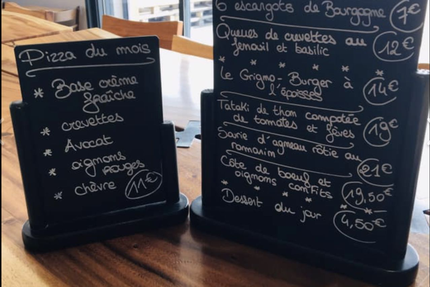 Pizza du mois
* Base crème
fraîche
* crevettes
* Avocat
* oignons
rouges
* chèvre 11€
6 escargots de Bourgogne 7€
Queues de crevettes au
fenouil et basilic 12€
* * *
Le Grigno-Burger à
l'époisses 14€
Tataki de thon compotée
de tomates et fèves 19€
Sarie d'agneau rôtie au
romarin 21€
Côte de boeuf et
oignons confits 19,50€
* * * *
Dessert du jour 4,50€